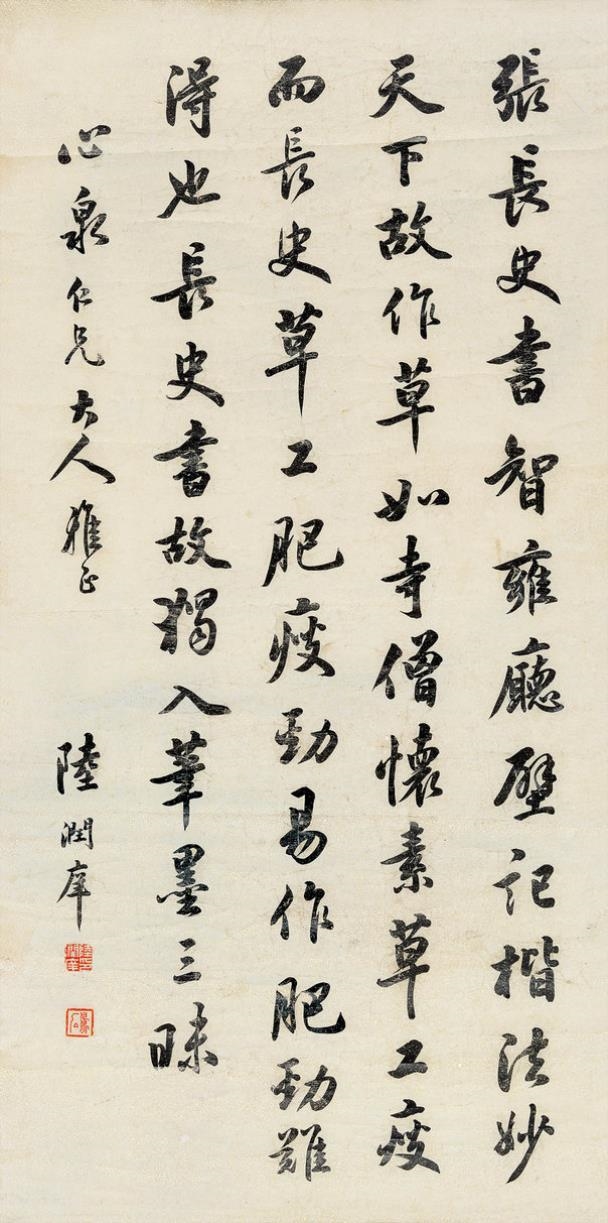 張長史書智雍廳壁記楷法妙
天下故作草如寺僧懷素草工瘦
而長史草工肥瘦勁易作肥勁難
得也長史書故獨入筆墨三昧
心泉仁兄大人雅正
陸潤庠